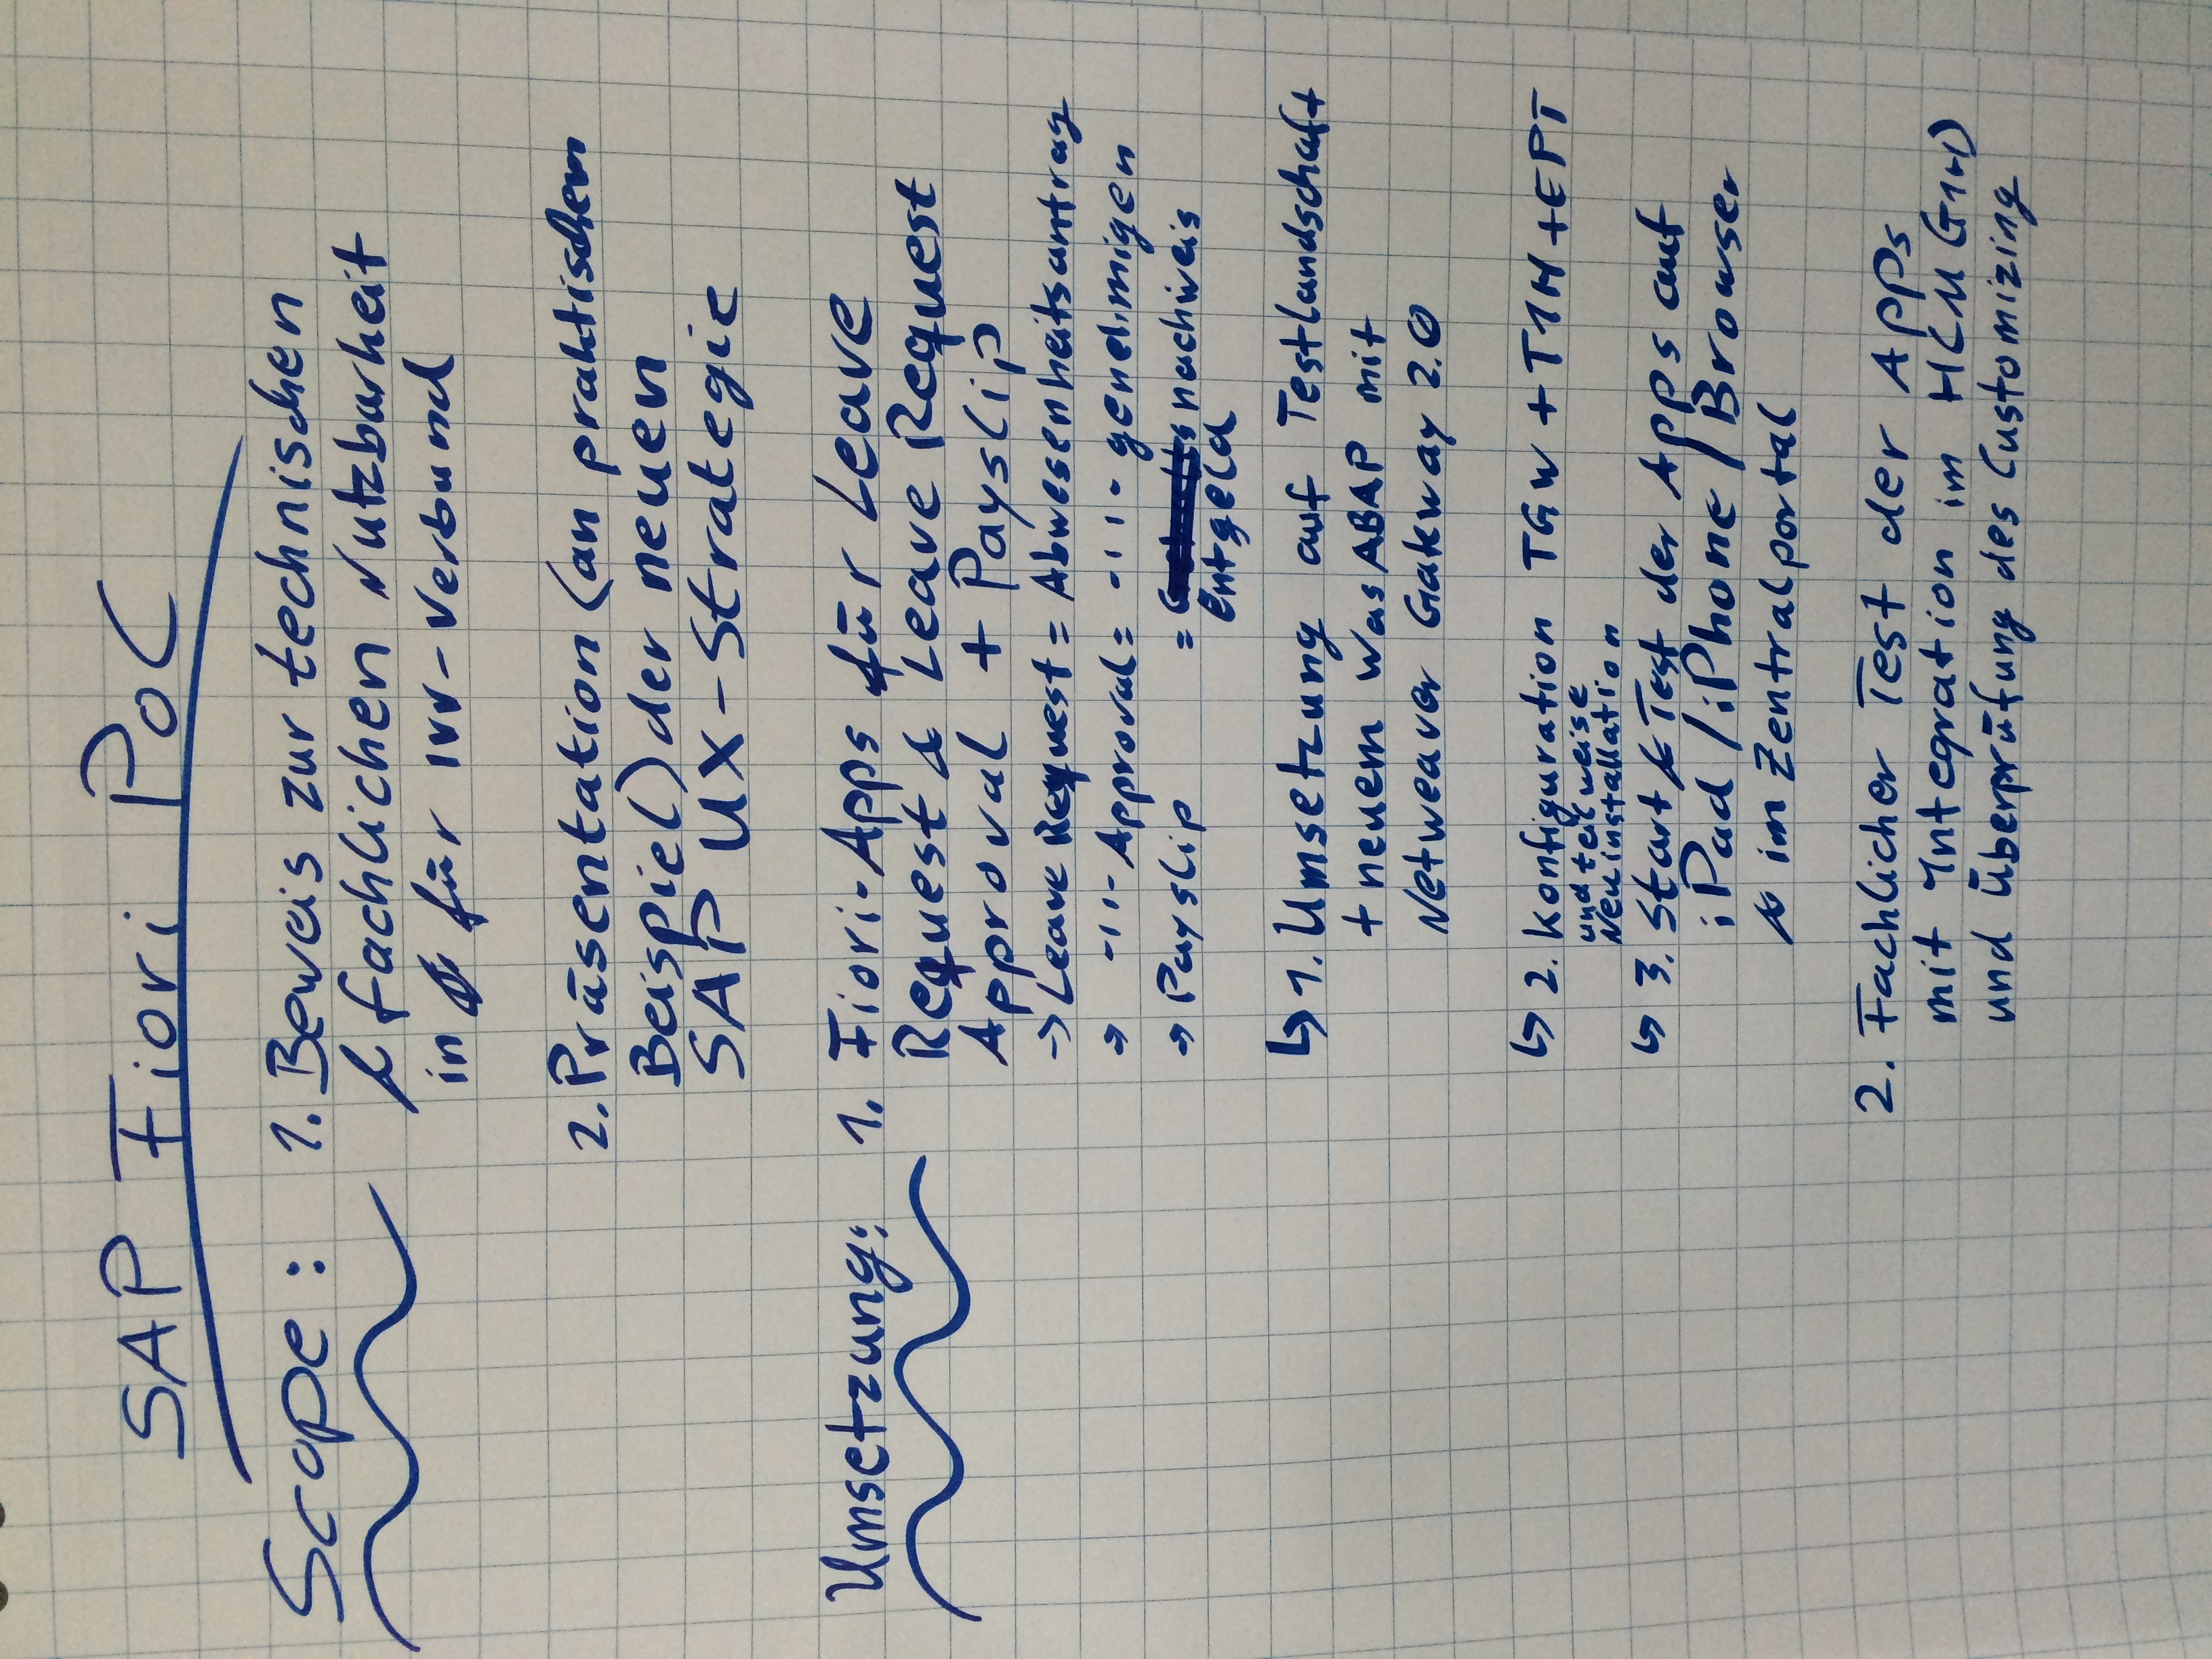 SAP Fiori PoC
Scope: 1. Beweis zur technischen
& fachlichen Nutzbarkeit
in für IVV-Verbund
2. Präsentation (an praktischem
Beispiel) der neuen
SAP UX-Strategie
Umsetzung: 1. Fiori-Apps für Leave
Request & Leave Request
Approval + Payslip
-> Leave Request = Abwesenheitsantrag
-> -"- Approval = -"- genehmigen
-> Payslip = nachweis
Entgeld
↳ 1. Umsetzung auf Testlandschaft
+ neuem WasABAP mit
Netweaver Gateway 2.0
↳ 2. Konfiguration TGW + T1H + EPT
und teilweise
Neuinstallation
↳ 3. Start & Test der Apps auf
iPad / iPhone / Browser
& im Zentralportal
2. Fachlicher Test der Apps
mit Integration im HCM
und Überprüfung des Customizing